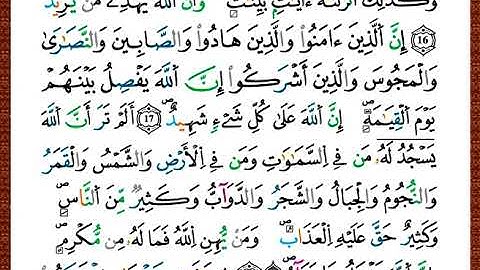 وَكَذَٰلِكَ أَنزَلْنَٰهُ ءَايَٰتِۭ بَيِّنَٰتٍۖ وَأَنَّ ٱللَّهَ يَهْدِے مَنْ يُّرِيدُ
١٦ إِنَّ ٱلَّذِينَ ءَامَنُواْ وَٱلَّذِينَ هَادُواْ وَٱلصَّٰبِينَ وَٱلنَّصَٰرَىٰ
وَٱلْمَجُوسَ وَٱلَّذِينَ أَشْرَكُواْ إِنَّ ٱللَّهَ يَفْصِلُ بَيْنَهُمْ
يَوْمَ ٱلْقِيَٰمَةِۖ إِنَّ ٱللَّهَ عَلَىٰ كُلِّ شَےْءٖ شَهِيدٌۖ ١٧ أَلَمْ تَرَ أَنَّ ٱللَّهَ
يَسْجُدُ لَهُۥ مَن فِے ٱلسَّمَٰوَٰتِ وَمَن فِے ٱلْأَرْضِ وَٱلشَّمْسُ وَٱلْقَمَرُ
وَٱلنُّجُومُ وَٱلْجِبَالُ وَٱلشَّجَرُ وَٱلدَّوَآبُّ وَكَثِيرٌ مِّنَ ٱلنَّاسِۖ
وَكَثِيرٌ حَقَّ عَلَيْهِ ٱلْعَذَابُۖ وَمَنْ يُّهِنِ ٱللَّهُ فَمَا لَهُۥ مِن مُّكْرِمٍۖ